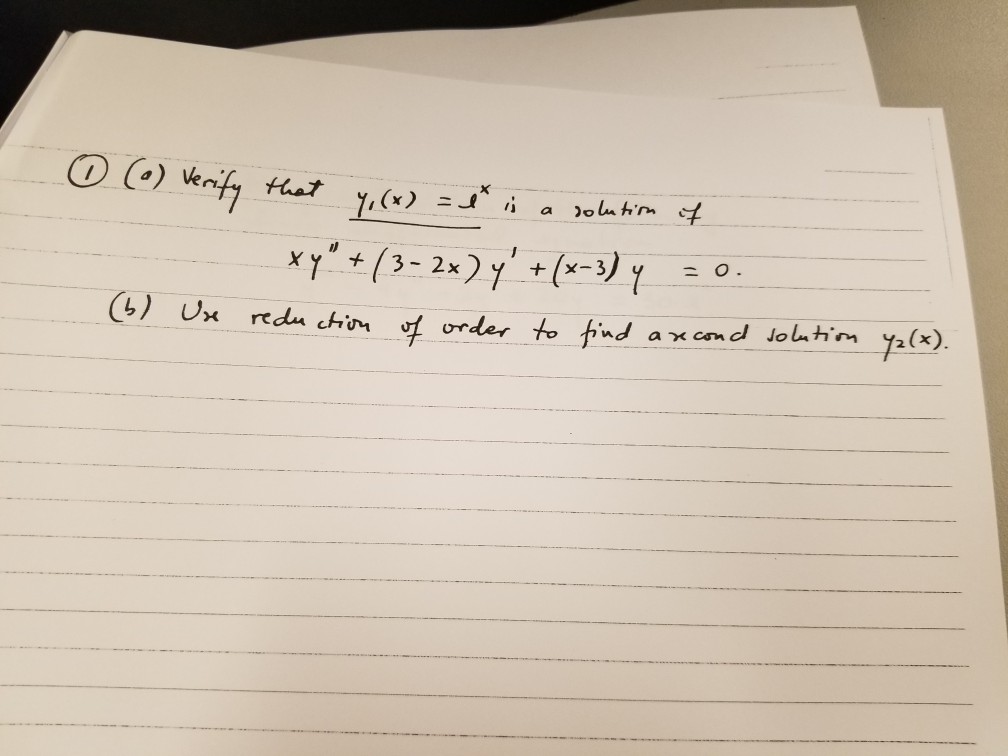 ① (a) Verify that y₁(x) = eˣ is a solution of
xy" + (3 - 2x) y' + (x-3) y = 0.
(b) Use reduction of order to find a second solution y₂(x).